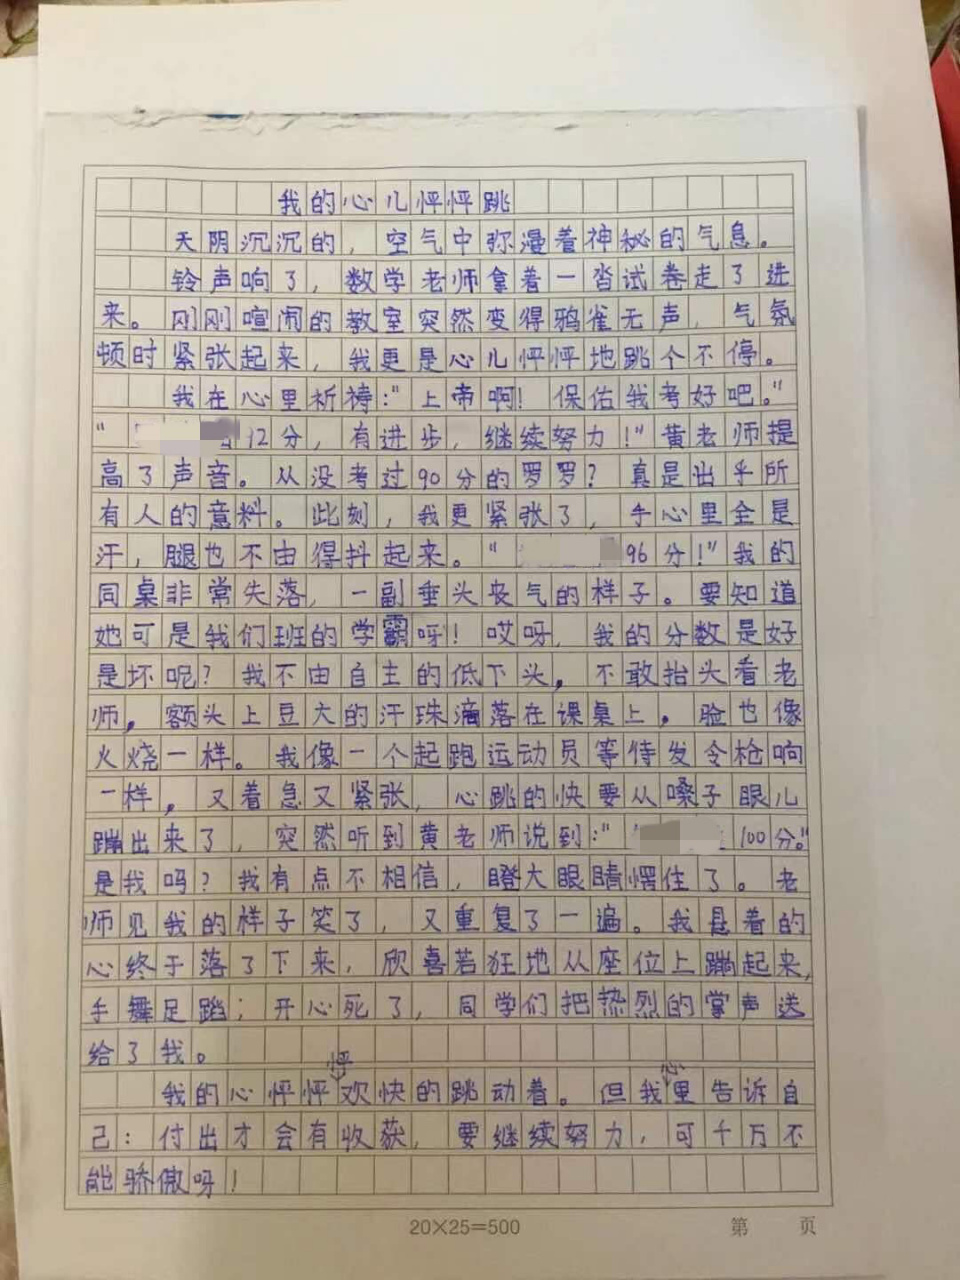 我的心儿怦怦跳
天阴沉沉的，空气中弥漫着神秘的气息。
铃声响了，数学老师拿着一沓试卷走了进
来。刚刚喧闹的教室突然变得鸦雀无声，气氛
顿时紧张起来，我更是心儿怦怦地跳个不停。
我在心里祈祷：“上帝啊！保佑我考好吧。”
“12分，有进步，继续努力！”黄老师提
高了声音。从没考过90分的罗罗？真是出乎所
有人的意料。此刻，我更紧张了，手心里全是
汗，腿也不由得抖起来。“96分！”我的
同桌非常失落，一副垂头丧气的样子。要知道
她可是我们班的学霸呀！哎呀，我的分数是好
是坏呢？我不由自主的低下头，不敢抬头看老
师，额头上豆大的汗珠滴落在课桌上，脸也像
火烧一样。我像一个起跑运动员等待发令枪响
一样，又着急又紧张，心跳的快要从嗓子眼儿
蹦出来了，突然听到黄老师说到：“100分。”
是我吗？我有点不相信，瞪大眼睛愣住了。老
师见我的样子笑了，又重复了一遍。我悬着的
心终于落了下来，欣喜若狂地从座位上蹦起来，
手舞足蹈；开心死了，同学们把热烈的掌声送
给了我。
我的心怦怦怦欢快的跳动着。但我心里告诉自
己：付出才会有收获，要继续努力，可千万不
能骄傲呀！
20×25=500 第 页